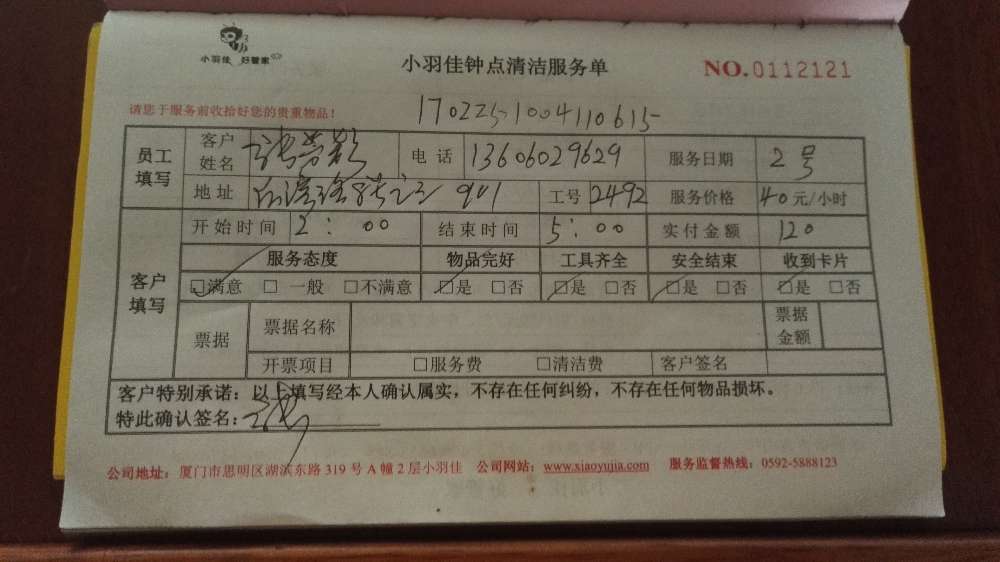 小羽佳 好管家
小羽佳钟点清洁服务单
NO.0112121
请您于服务前收拾好您的贵重物品！
170225-1004110615
员工填写 客户姓名 张 电话 13606029629 服务日期 2号
地址 901 工号 2492 服务价格 40元/小时
客户填写 开始时间 2：00 结束时间 5：00 实付金额 120
服务态度 物品完好 工具齐全 安全结束 收到卡片
☑满意 □一般 □不满意 ☑是 □否 ☑是 □否 ☑是 □否 ☑是 □否
票据 票据名称 票据金额
开票项目 □服务费 □清洁费 客户签名
客户特别承诺：以上填写经本人确认属实，不存在任何纠纷，不存在任何物品损坏。
特此确认签名：张
公司地址：厦门市思明区湖滨东路319号A幢2层小羽佳 公司网站：www.xiaoyujia.com 服务监督热线：0592-5888123